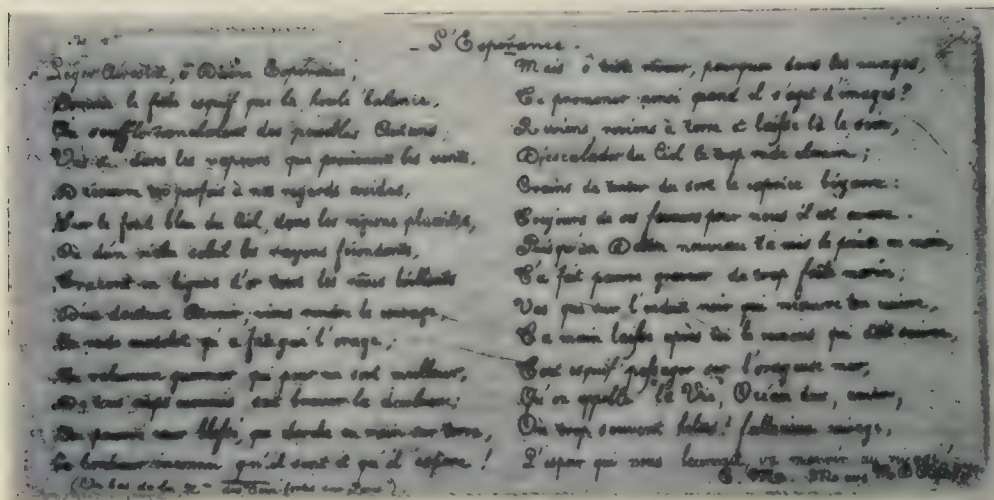 L'Espérance.
Léger Aérostat, ô Divine Espérance,
le frêle esquif que la houle balance,
Au souffle des paisibles Autans,
dans les vapeurs que promènent les vents,
Découvrir parfois à nos regards avides,
Sur le fond bleu du Ciel, dans les régions placides,
Où d'un soleil les rayons fécondants,
en lignes d'or tous les rêves brillants
D'un douteux Avenir, viens rendre le courage,
Au rude matelot qu'a fatigué l'orage,
Au valeureux guerrier qui pour un sort meilleur,
De tous sait braver la douleur;
Au pauvre cœur blessé, qui cherche en vain sur terre,
Le bonheur inconnu qu'il sent et qu'il espère!
(Un bas de la
Mais ô triste rêveur, pourquoi dans les nuages,
Te promener ainsi quand il s'agit d'images?
Reviens, reviens à terre et laisse là le soin,
D'escalader du Ciel le trop rude chemin;
Crains de tenter du sort le caprice bizarre:
Toujours de ses faveurs pour nous il est avare.
Puisqu'un Destin nouveau t'a mis la pointe en main,
T'a fait pauvre graveur de trop frêle marin;
Vas que sur l'enduit noir que recouvre ton cuivre,
Ta main laisse après toi le qui doit suivre,
Tout esquif passager sur l'orageuse mer,
Qu'on appelle la Vie, Océan dur, amer,
Où trop souvent hélas! fallacieux mirage,
L'espoir qui nous berçait, va mourir au
C. M.